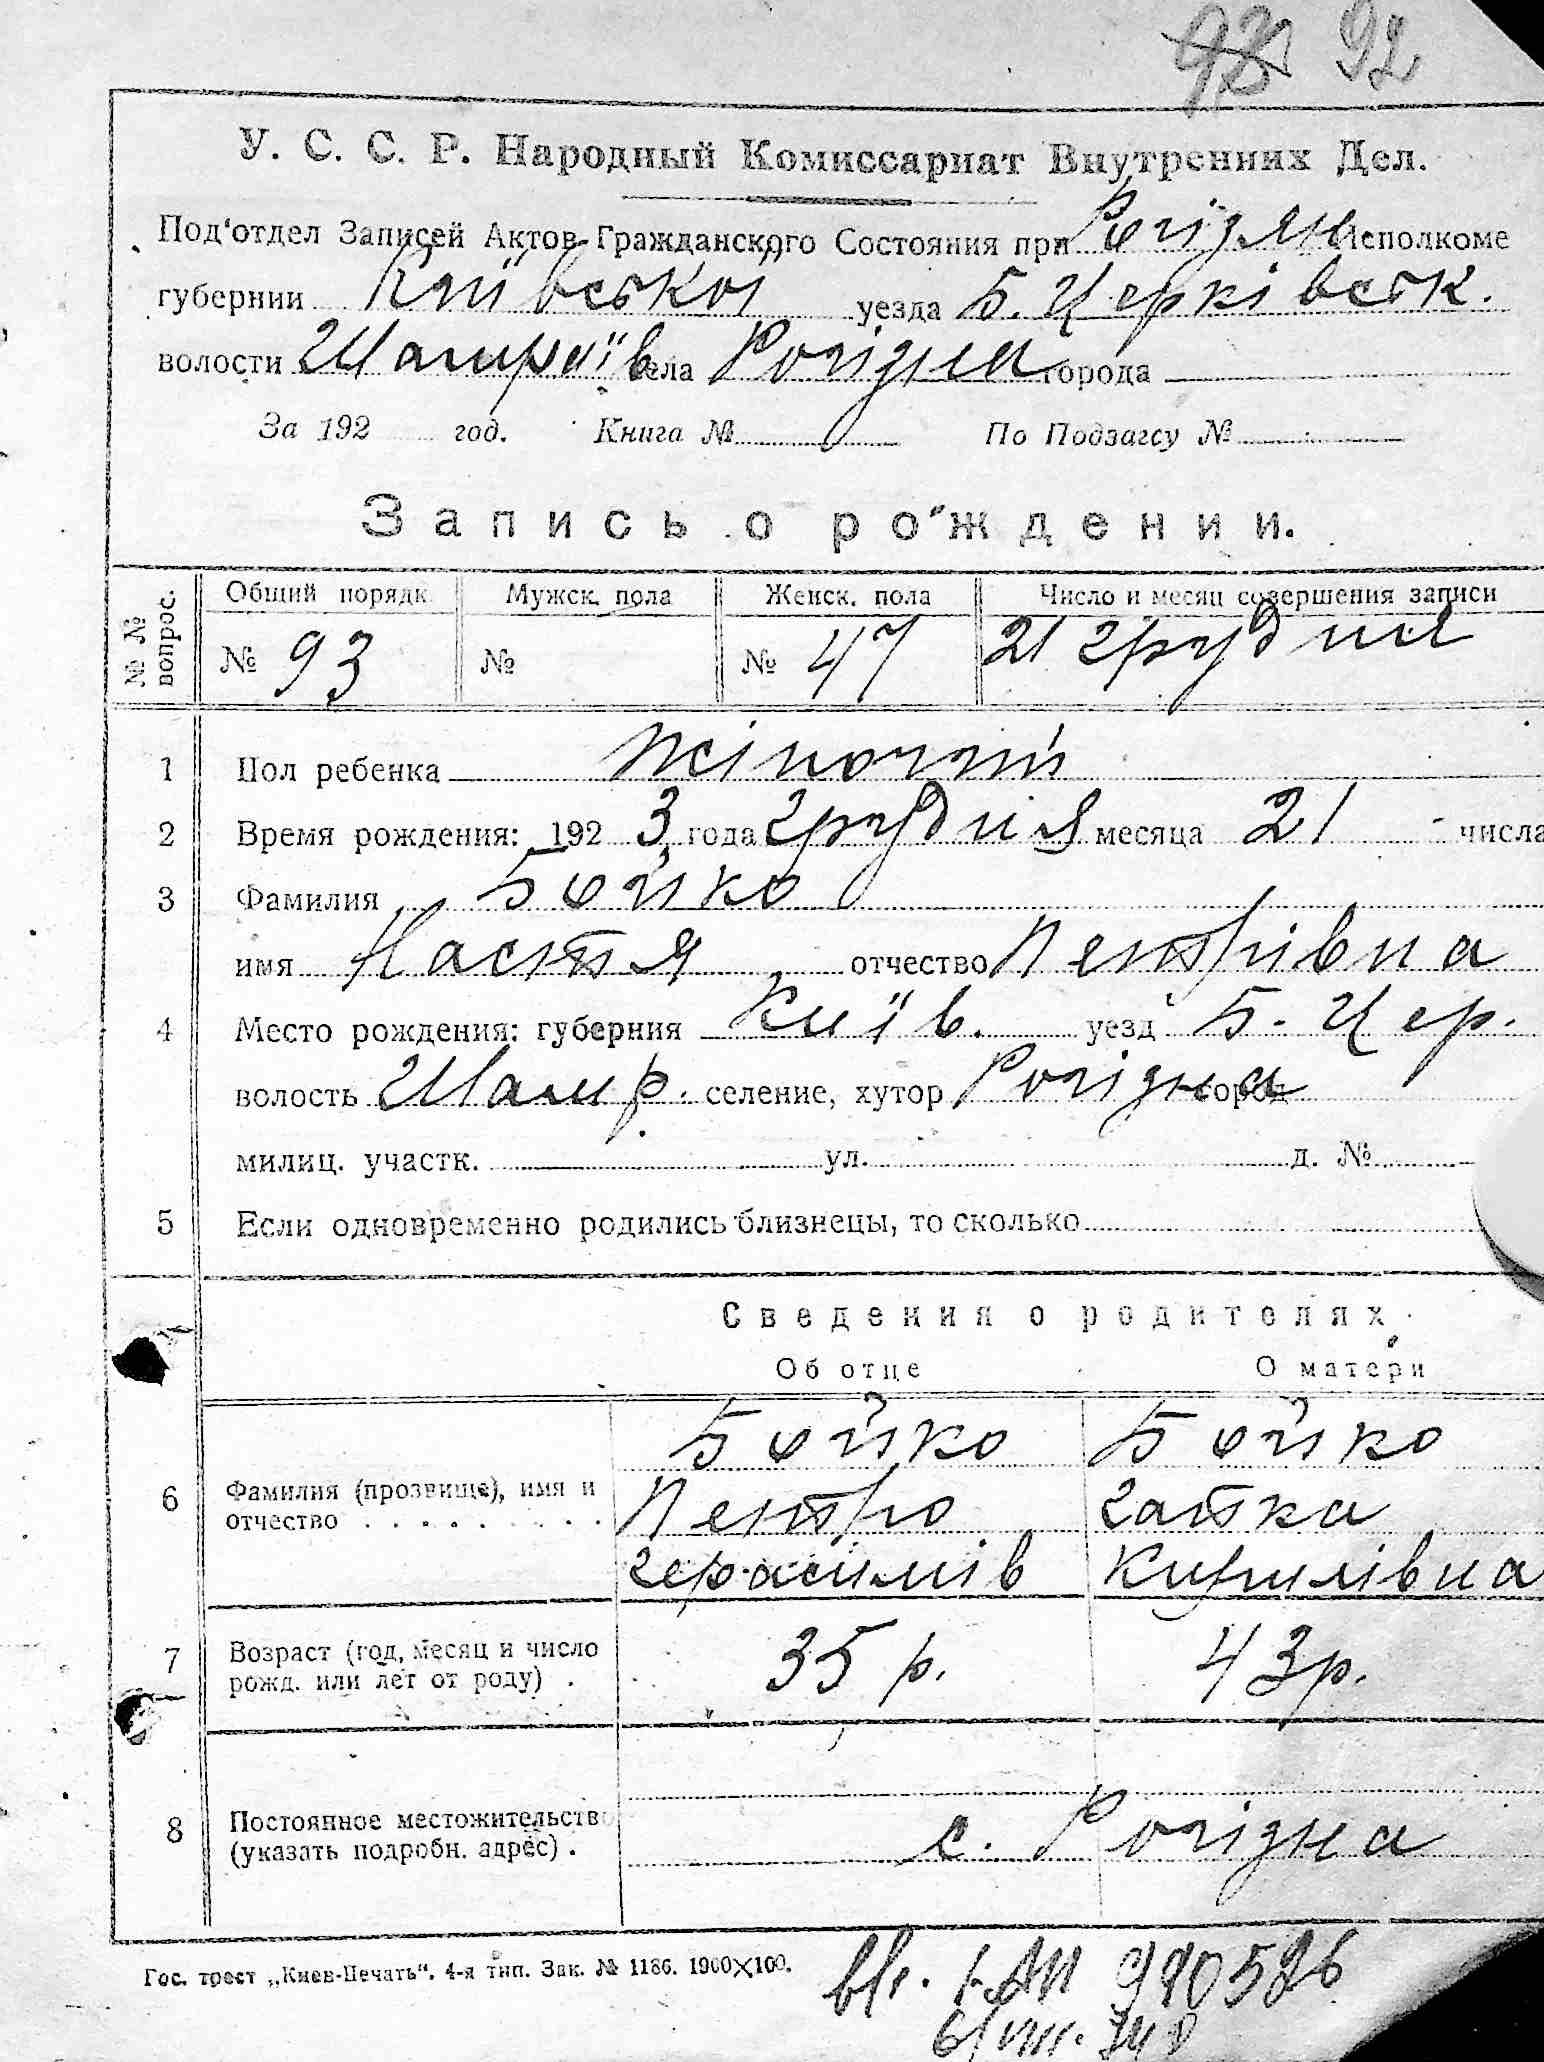 93 92
У. С. С. Р. Народный Комиссариат Внутренних Дел.
Под'отдел Записей Актов Гражданского Состояния при Рогізнян. Исполкоме
губернии Київської уезда Б. Церківськ.
волости Шамраїв села Рогізна города
За 192 год. Книга № По Подзагсу №
Запись о рождении.
№ № вопрос. Общий порядк. Мужск. пола Женск. пола Число и месяц совершения записи
№ 93 № № 47 21 грудня
1 Пол ребенка жіночий
2 Время рождения: 192 3 года грудня месяца 21 числа
3 Фамилия Бойко
имя Настя отчество Петрівна
4 Место рождения: губерния Київ. уезд Б. Цер.
волость Шамр. селение, хутор Рогізна город
милиц. участк. ул. д. №
5 Если одновременно родились близнецы, то сколько
Сведения о родителях.
Об отце О матери
Бойко Бойко
6 Фамилия (прозвище), имя и отчество Петро Гапка
Герасимів Кирилівна
7 Возраст (год, месяц и число рожд. или лет от роду) . 35 р. 43 р.
8 Постоянное местожительство (указать подробн. адрес) . с. Рогізна
Гос. трест „Киев-Печать“. 4-я тип. Зак. № 1186. 1900×100.